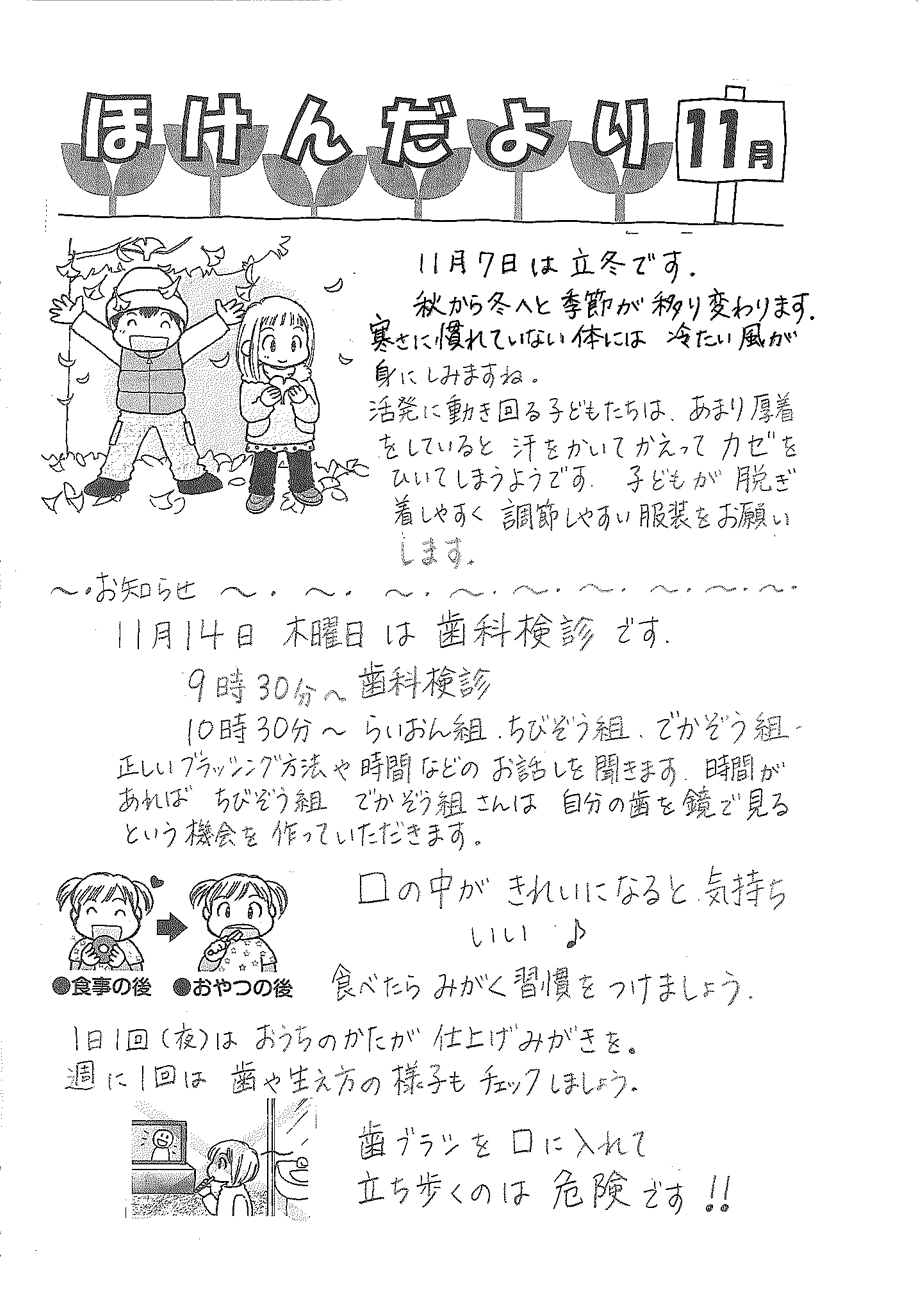 ほけんだより 11月
11月7日は立冬です.
秋から冬へと季節が移り変わります.
寒さに慣れていない体には 冷たい風が
身にしみますね。
活発に動き回る子どもたちは、あまり厚着
をしていると 汗をかいてかえって カゼを
ひいてしまうようです. 子どもが 脱ぎ
着しやすく 調節しやすい服装をお願い
します.
〜・お知らせ 〜・〜・〜・〜・〜・〜・〜・〜・〜・
11月14日 木曜日は 歯科検診です.
9時30分〜 歯科検診
10時30分〜 らいおん組、ちびぞう組、でかぞう組
正しいブラッシング方法や時間などの お話しを聞きます. 時間が
あれば ちびぞう組 でかぞう組さんは 自分の歯を鏡で見る
という機会を 作っていただきます。
口の中が きれいになると 気持ち
いい ♪
●食事の後 ●おやつの後
食べたら みがく習慣を つけましょう.
1日1回(夜)は おうちのかたが 仕上げみがきを。
週に1回は 歯や生え方の様子も チェックしましょう。
歯ブラシを 口に入れて
立ち歩くのは 危険です!!